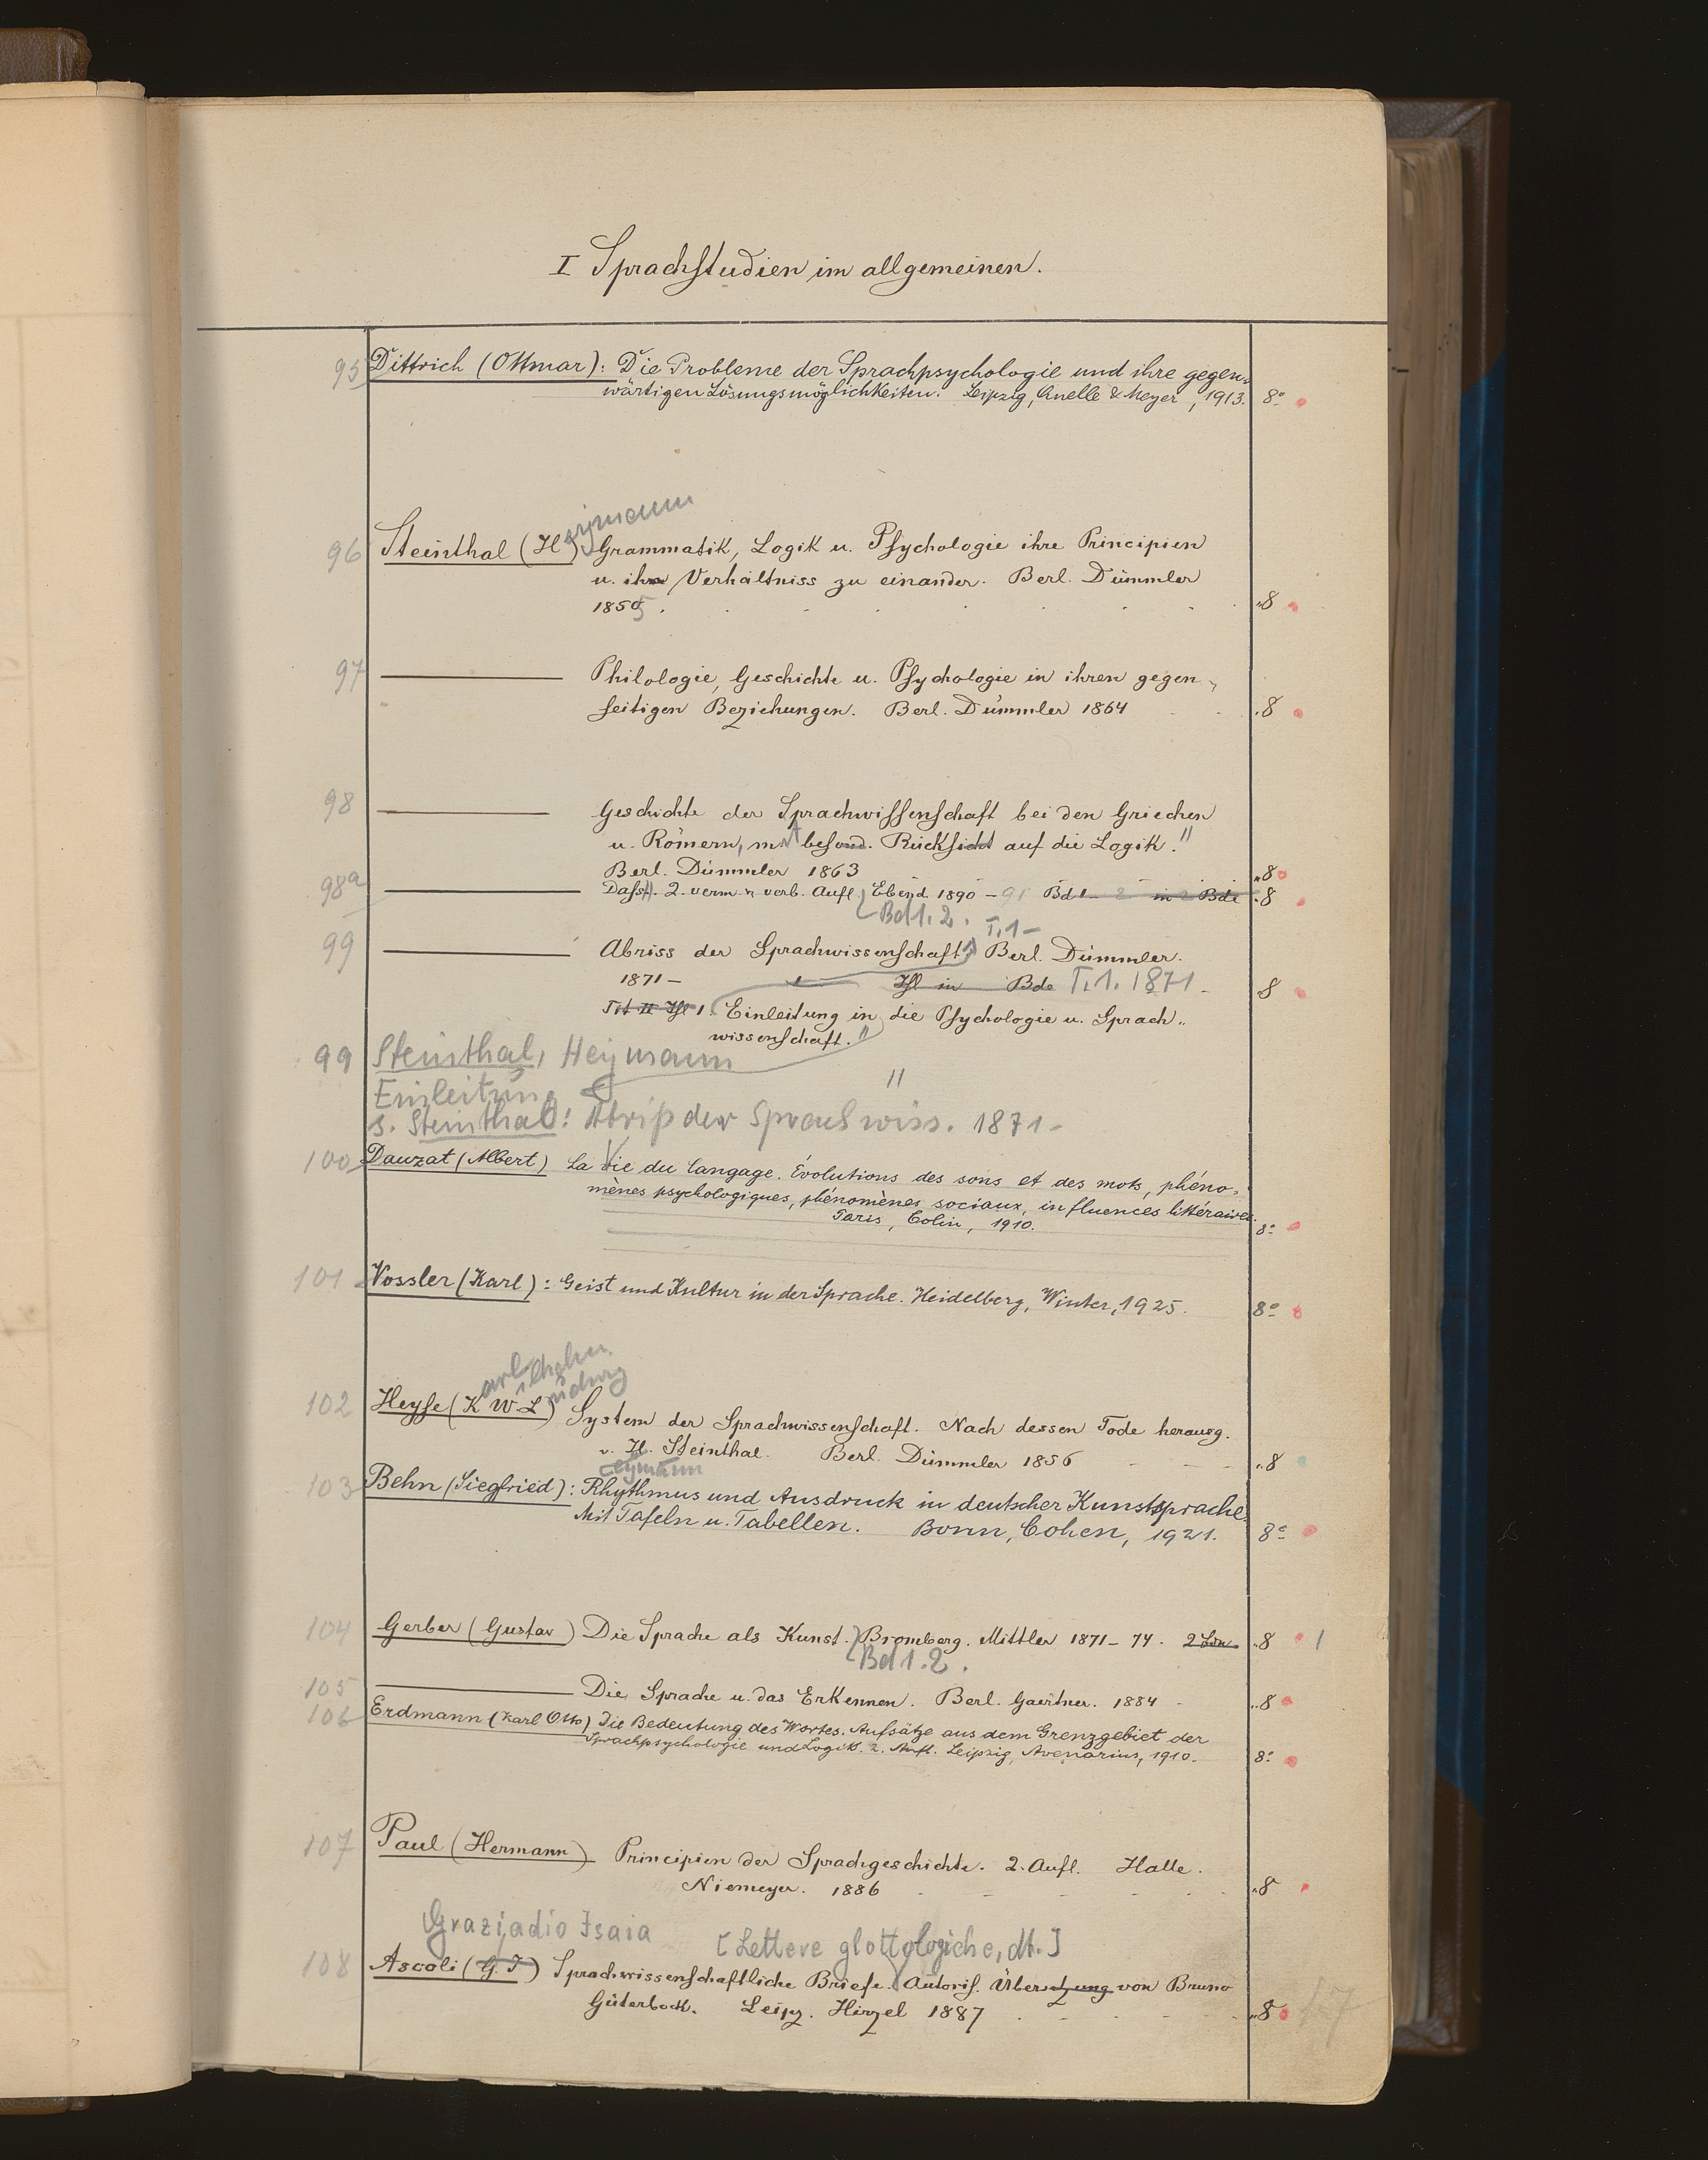 I Sprachstudien im allgemeinen.
95 Dittrich (Ottmar): Die Probleme der Sprachpsychologie und ihre gegen-
wärtigen Lösungsmöglichkeiten. Leipzig, Quelle & Meyer, 1913. 8°
eymann
96 Steinthal (H) Grammatik, Logik u. Psychologie ihre Principien
u. ihr Verhältniss zu einander. Berl. Dümmler
1855 . . . . . . „8
97 ——— Philologie, Geschichte u. Psychologie in ihren gegen-
seitigen Beziehungen. Berl. Dümmler 1864 . . „8
98 ——— Geschichte der Sprachwissenschaft bei den Griechen
u. Römern, mit besond. Rücksicht auf die Logik."
Berl. Dümmler 1863 „8
98a ——— Dass. 2. verm. u verb. Aufl. Ebend. 1890 – 91 Bd 1 – 2 in 2 Bde „8
Bd 1. 2. T. 1 –
99 ——— Abriss der Sprachwissenschaft. Berl. Dümmler.
1871 – Thl in Bde T. 1. 1871 – „8
Tit II Thl 1. Einleitung in die Psychologie u. Sprach„
wissenschaft."
99 Steinthal, Heymann
Einleitung "
s. Steinthal: Abriß der Sprachwiss. 1871 –
100 Dauzat (Albert) La Vie du langage. Évolutions des sons et des mots, phéno-
mènes psychologiques, phénomènes sociaux, influences littéraires.
Paris, Colin, 1910. 8°
101 Vossler (Karl): Geist und Kultur in der Sprache. Heidelberg, Winter, 1925. 8°
arl ilhelm udwig
102 Heyse (K W L) System der Sprachwissenschaft. Nach dessen Tode herausg.
v. H. Steinthal. Berl. Dümmler 1856 – – – „8
eymann
103 Behn (Siegfried): Rhythmus und Ausdruck in deutscher Kunstsprache.
Mit Tafeln u. Tabellen. Bonn, Cohen, 1921. 8°
104 Gerber (Gustav) Die Sprache als Kunst. Bromberg. Mittler 1871 – 74. 2 Bde „8 1
Bd 1. 2.
105 ——— Die Sprache u. das Erkennen. Berl. Gaertner. 1884 – „8
106 Erdmann (Karl Otto) Die Bedeutung des Wortes. Aufsätze aus dem Grenzgebiet der
Sprachpsychologie und Logik. 2. Aufl. Leipzig, Avenarius, 1910. 8°
107 Paul (Hermann) Principien der Sprachgeschichte. 2. Aufl. Halle.
Niemeyer. 1886 – – – – „8
Graziadio Isaia [Lettere glottologiche, dt.]
108 Ascoli (G. I) Sprachwissenschaftliche Briefe. Autoris. Übersetzung von Bruno
Güterbock. Leipz. Hirzel 1887 . – . – . „8 17